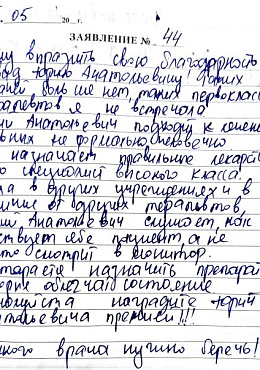 . 05 20 г.
ЗАЯВЛЕНИЕ № 44
у выразить свою благодарность
Юрию Анатольевичу! Таких
больше нет, таких первокласс
рапевтов я не встречала
Анатольевич подходит к лечени
ьных не формально,
назначает правильные лекарст
специалист высокого класса!
ла в других учреждениях и в
личие от других терапевтов
ий Анатольевич слушает, как
ствует себе пациент, а не
сто смотрит в монитор.
старается назначить препарат
орые облегчат состояние
наградите Юрия
тольевича премией!!!
кого врача нужно беречь!